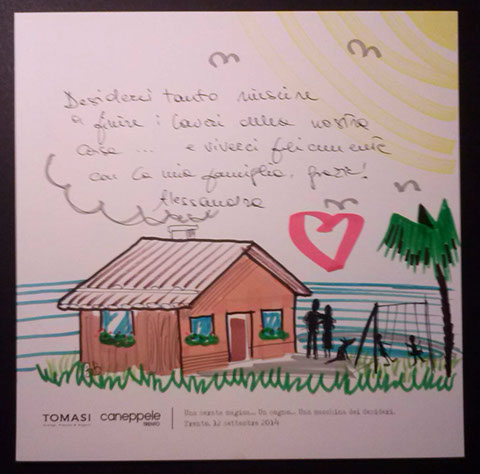 Desiderei tanto riuscire
a finire i lavori della nostra
casa ... e viverci felicemente
con la mia famiglia. grazie!
Alessandra
TOMASI
caneppele
TRENTO
Una serata magica... Un sogno... Una macchina dei desideri.
Trento, 12 settembre 2014